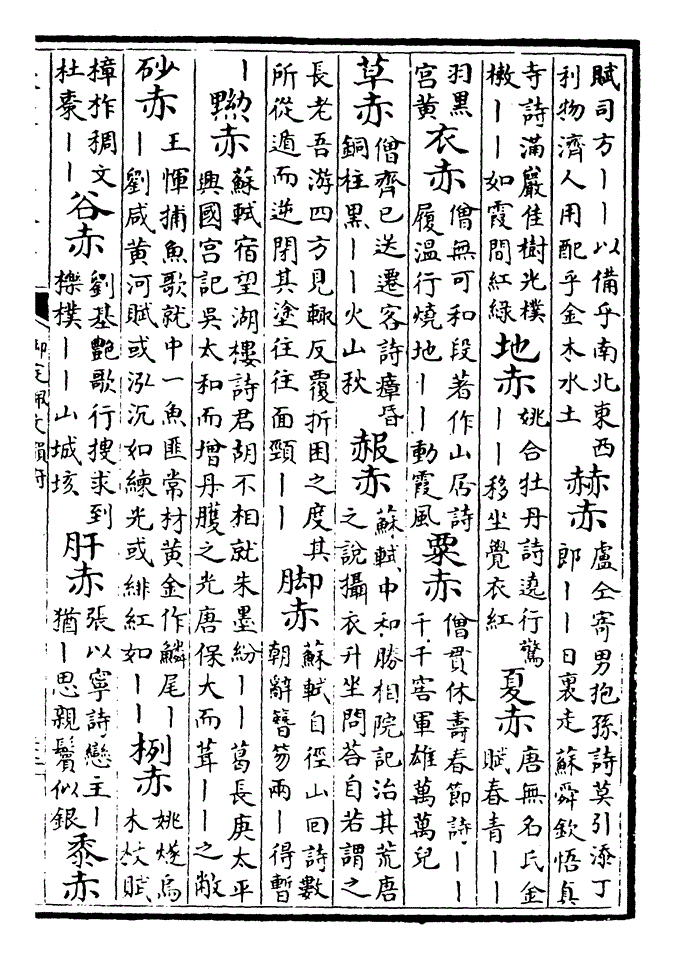 賦司方丨丨以備乎南北東西
利物濟人用配乎金木水土
赫赤
盧仝寄男抱孫詩莫引添丁
郎丨丨日裏走蘇舜欽悟真
寺詩滿巖佳樹光樸
樕丨丨如霞間紅綠
地赤
姚合牡丹詩遶行驚
丨丨移坐覺衣紅
夏赤
唐無名氏金
賦春青丨丨
羽黑
宮黄
衣赤
僧無可和段著作山居詩
履溫行燒地丨丨動霞風
粟赤
僧貫休壽春節詩丨丨
千千窖軍雄萬萬兒
草赤
僧齊己送遷客詩瘴昏
銅柱黑丨丨火山秋
赧赤
蘇軾中和勝相院記治其荒唐
之說攝衣升坐問荅自若謂之
長老吾游四方見輙反覆折困之度其
所從遁而逆閉其塗往往面頸丨丨
脚赤
蘇軾自徑山回詩數
朝辭簪笏兩丨得暫
丨
黝赤
蘇軾宿望湖樓詩君胡不相就朱墨紛丨丨葛長庚太平
興國宮記吳太和而增丹雘之光唐保大而葺丨丨之敞
砂赤
王惲捕魚歌就中一魚匪常材黄金作鱗尾丨
丨劉咸黄河賦或泓沉如練光或緋紅如丨丨
挒赤
姚燧烏
木杖賦
樟柞稠文
杜棗丨丨
谷赤
劉基艷歌行搜求到
櫟樸丨丨山城垓
肝赤
張以寧詩戀主丨
猶丨思親鬢似銀
黍赤